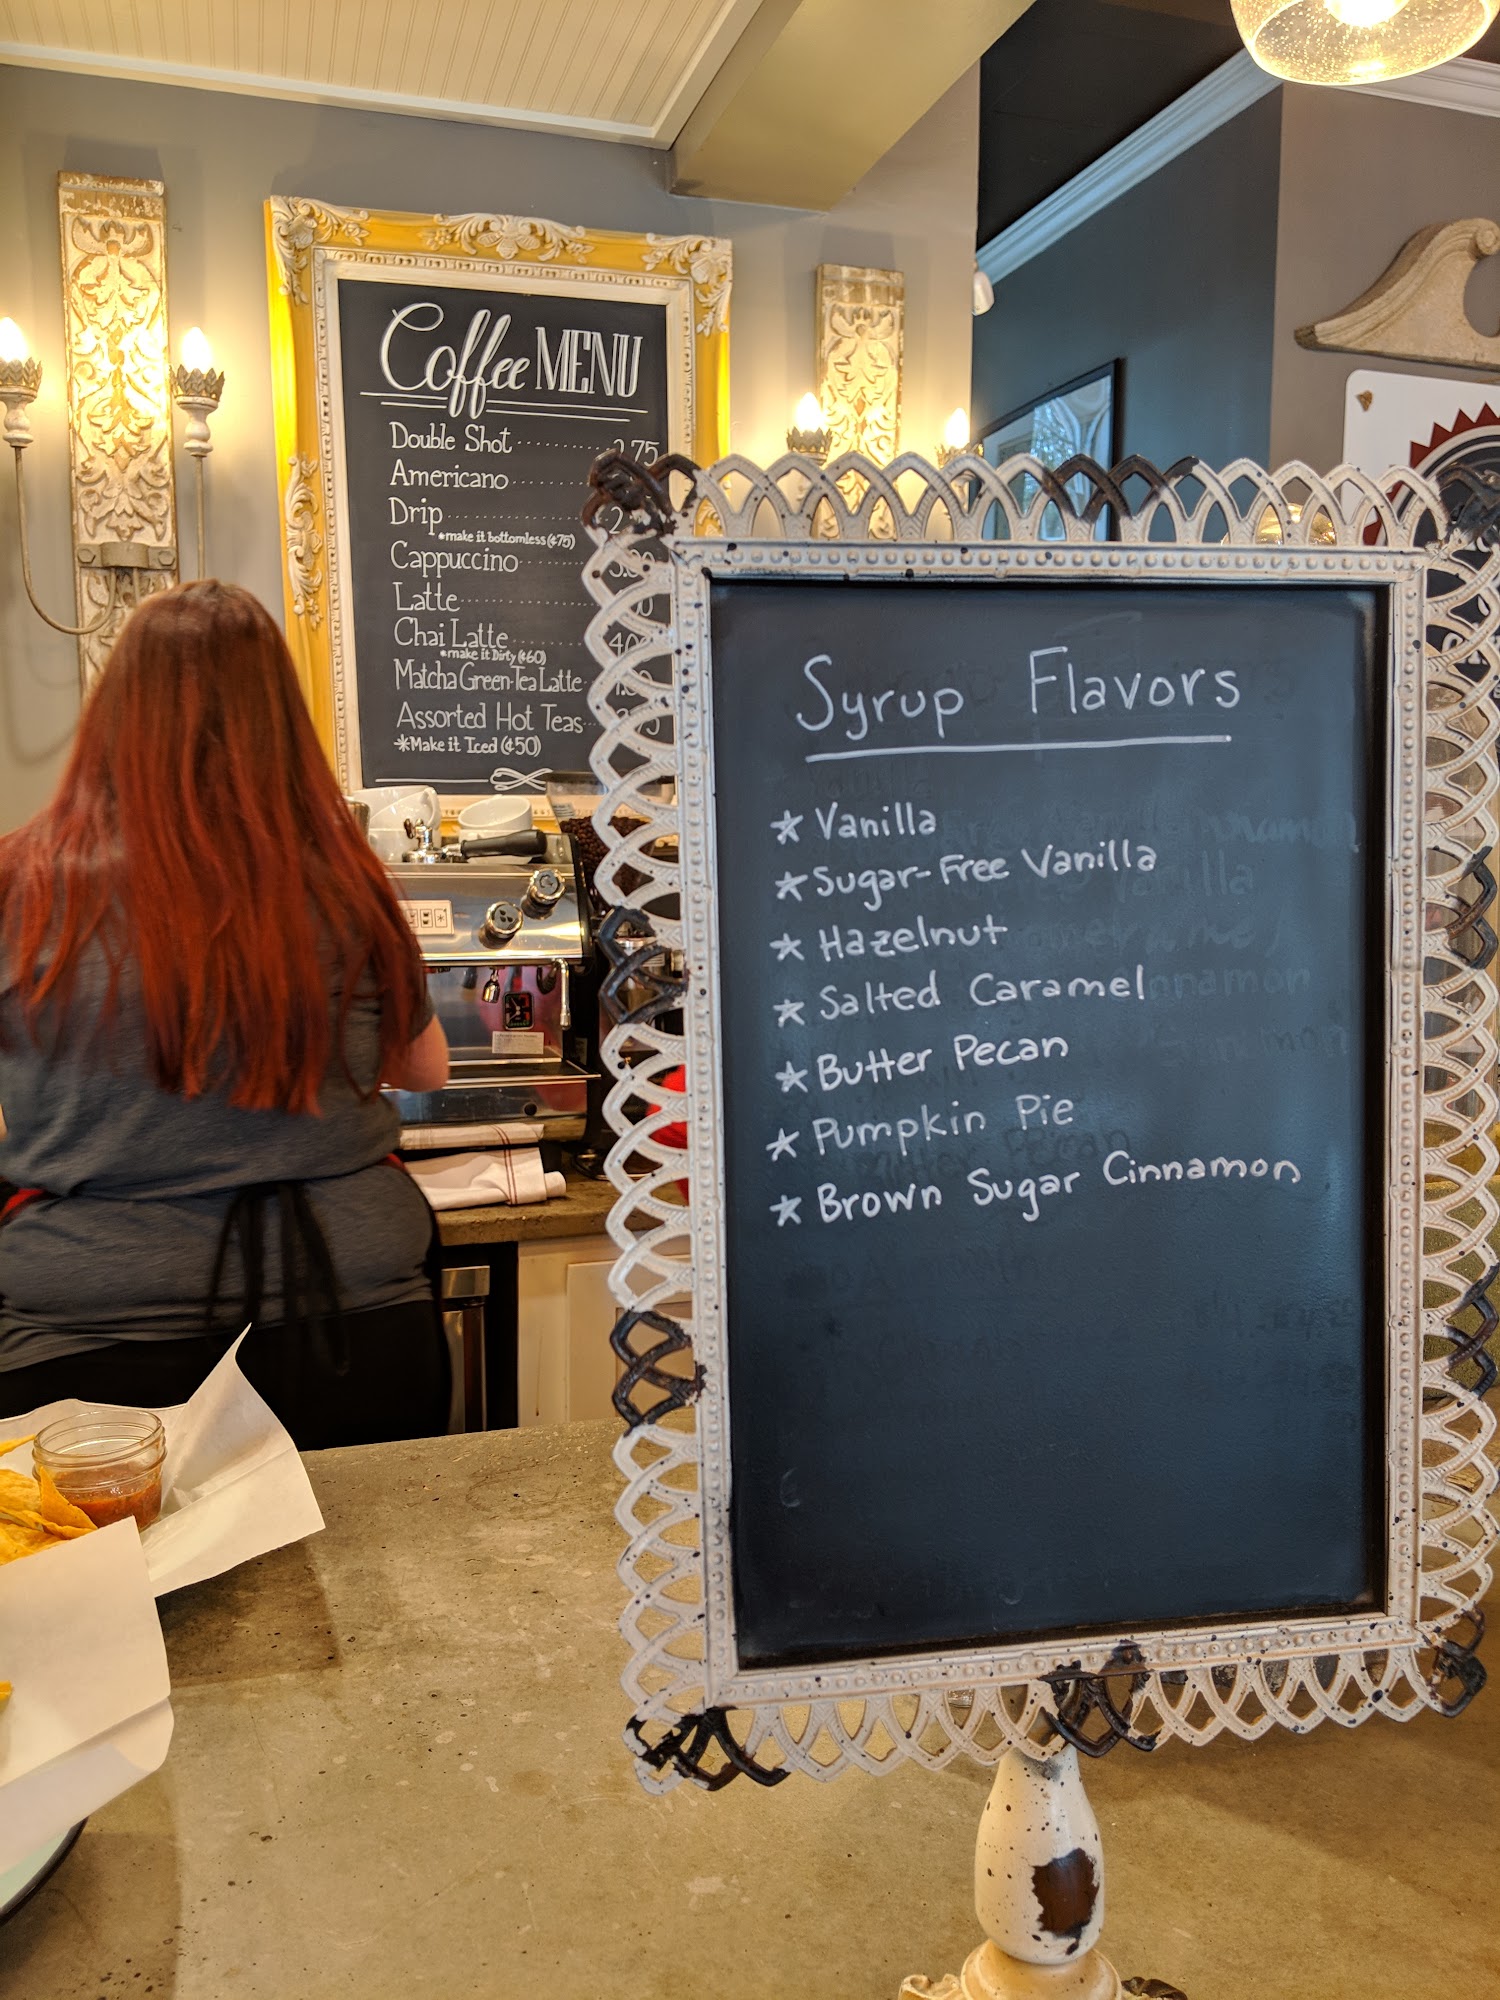 Coffee MENU
Double Shot 2.75
Americano
Drip 2
*make it bottomless (¢75)
Cappuccino
Latte
Chai Latte 4.00
*make it Dirty (¢60)
Matcha Green-Tea Latte
Assorted Hot Teas
*Make it Iced (¢50)
Syrup Flavors
* Vanilla
* Sugar-Free Vanilla
* Hazelnut
* Salted Caramel
* Butter Pecan
* Pumpkin Pie
* Brown Sugar Cinnamon